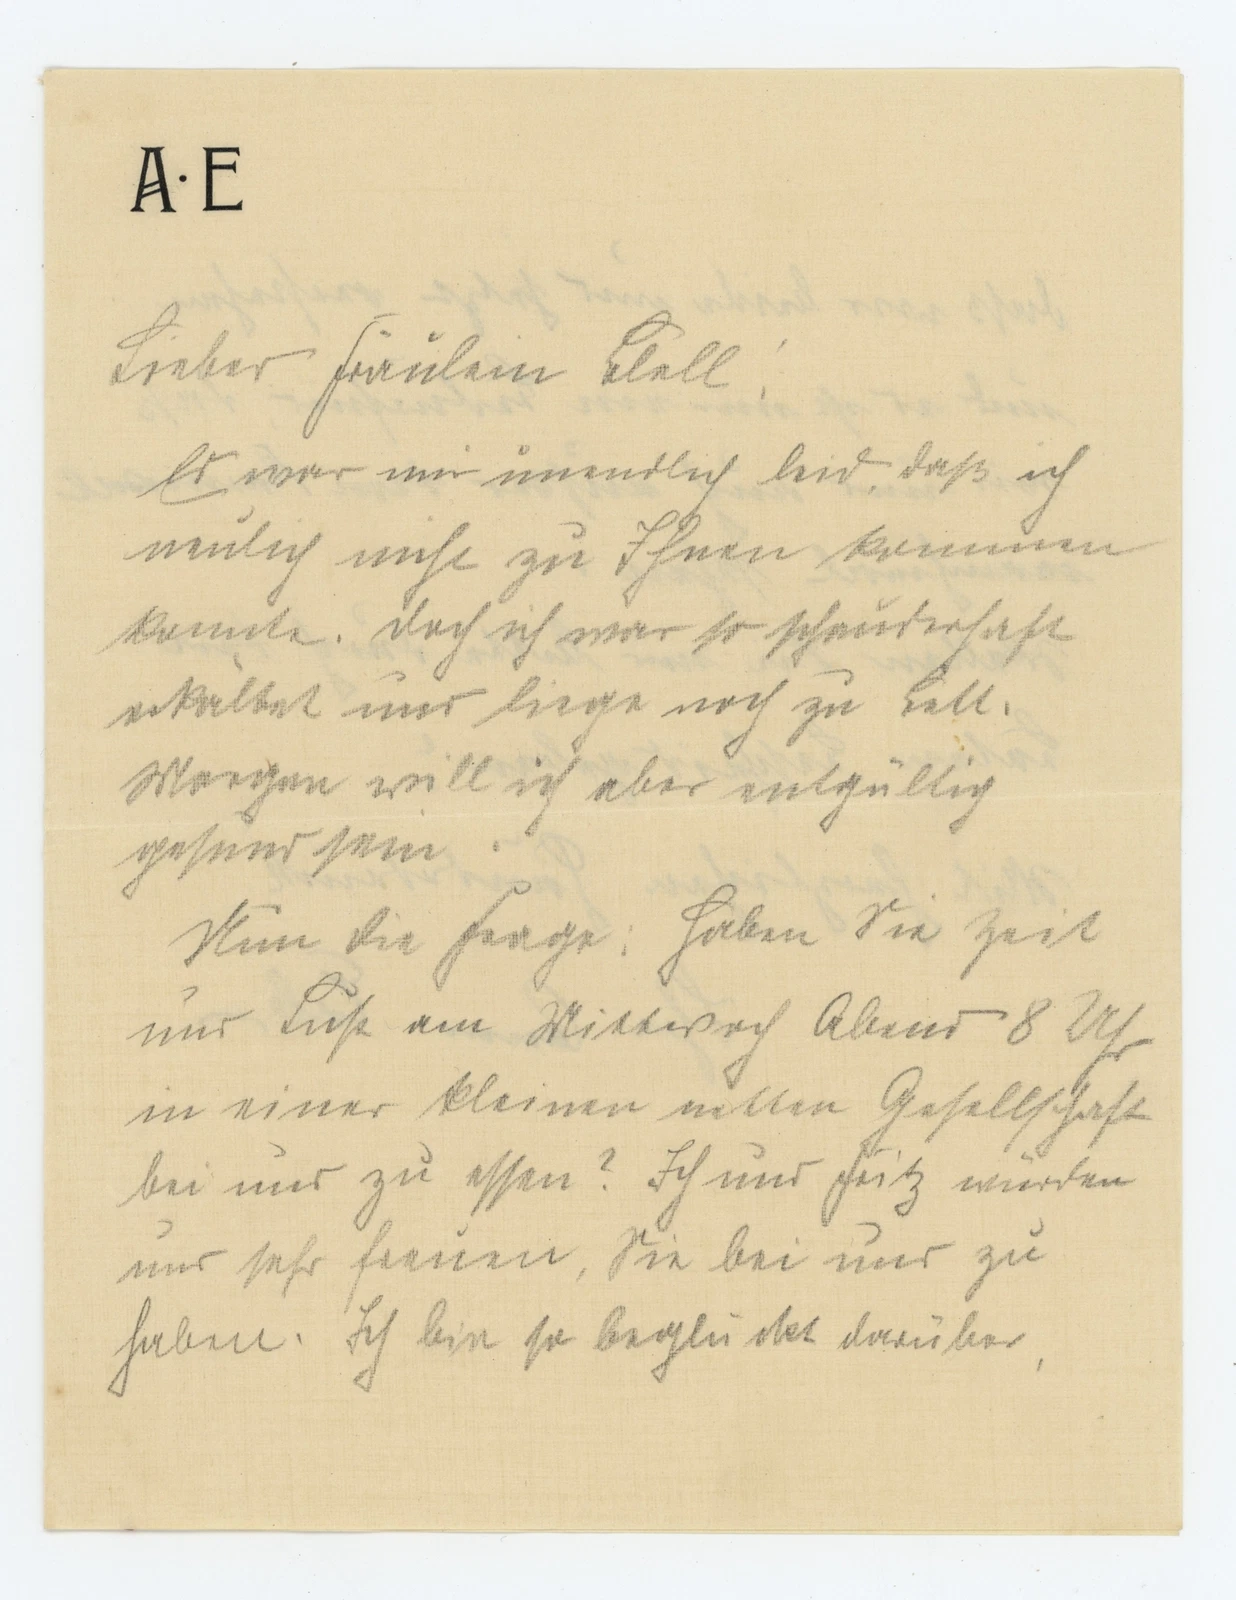 A·E
Lieber Fräulein Clell!
Es war mir unendlich leid, daß ich
neulich nicht zu Ihnen kommen
konnte. Doch ich war so schauderhaft
erkältet und liege noch zu Bett.
Morgen will ich aber entgültig
gesund sein.
Nun die Frage: Haben Sie Zeit
und Lust am Mittwoch Abend 8 Uhr
in einer kleinen netten Gesellschaft
bei uns zu essen? Ich und Fritz würden
uns sehr freuen, Sie bei uns zu
haben. Ich bin so beglückt darüber,